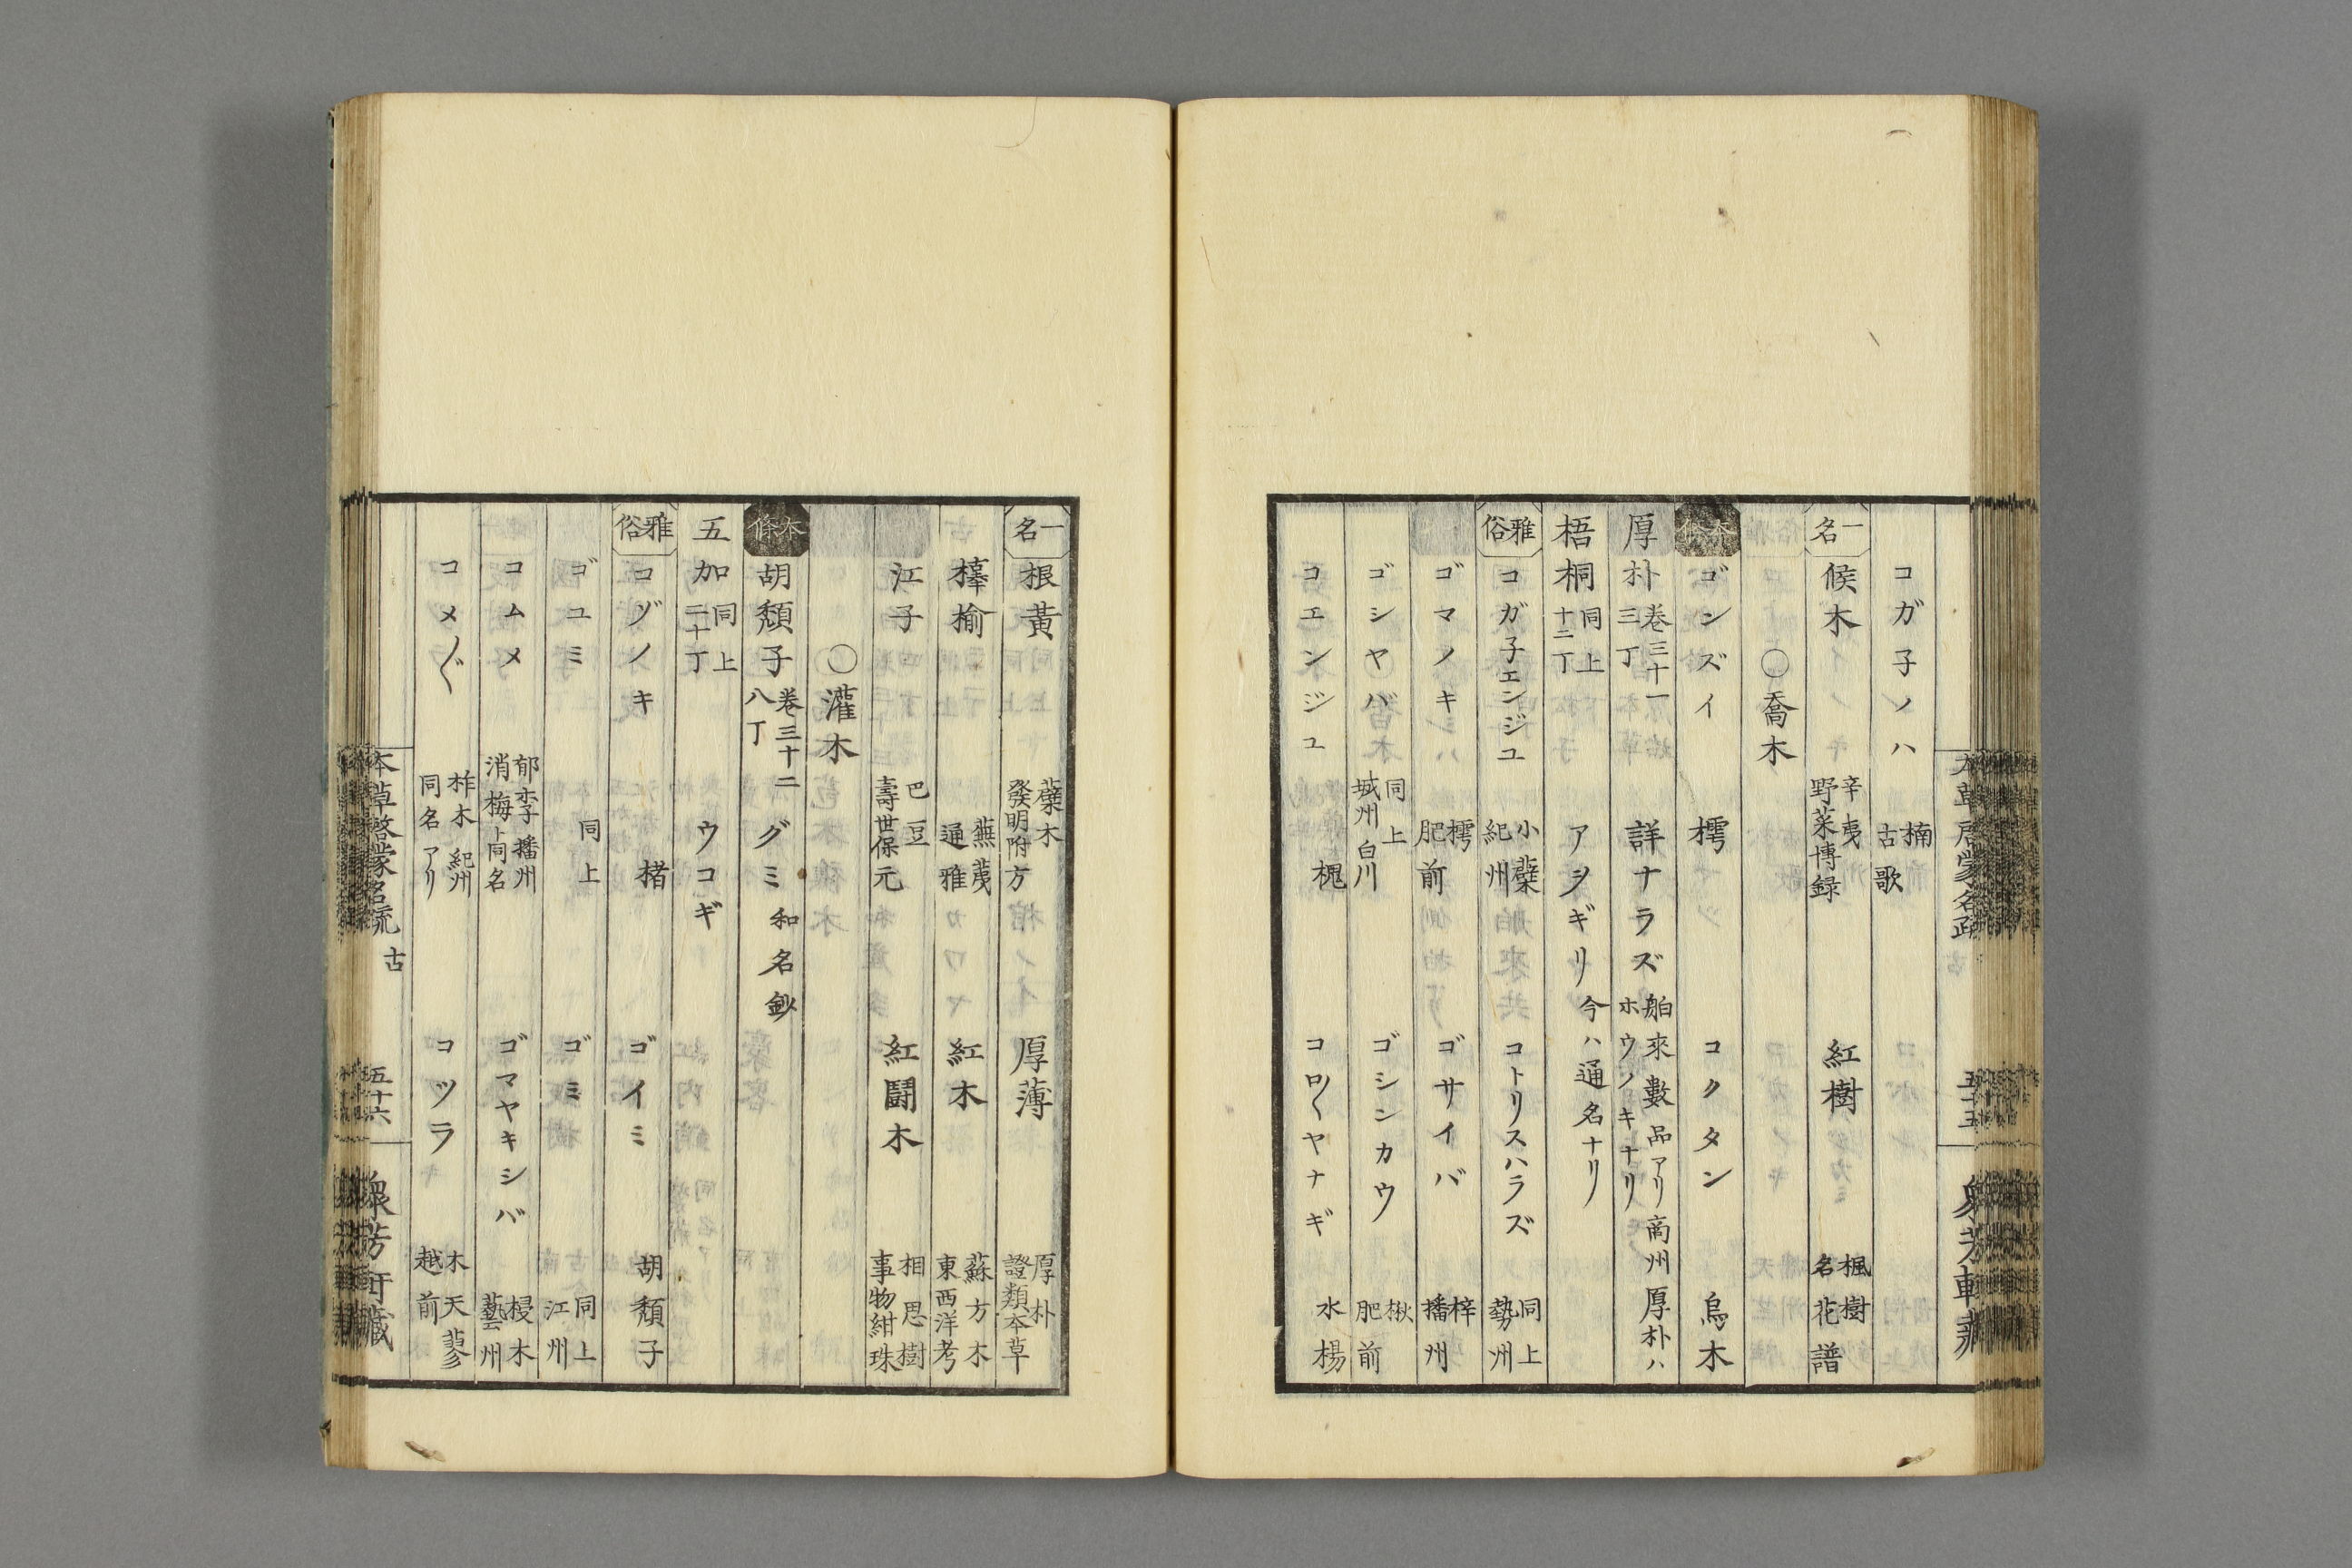 コガ子ノハ 楠 古歌
一名 候木 辛夷 野菜博録 紅樹 楓樹 名花譜
〇喬木
木條 ゴンズイ 樗 コクタン 烏木
厚朴 卷三十一 三丁 詳ナラズ 舶來數品アリ商州厚朴ハ ホウノキナリ
梧桐 同上 十二丁 アヲギリ 今ハ通名ナリ
雅俗 コガ子エンジユ 小蘗 紀州 コトリスハラズ 同上 勢州
ゴマノキ 樗 肥前 ゴサイバ 梓 播州
ゴシヤバ 同上 城州白川 ゴシンカウ 楸 肥前
コエンジユ 槐 コロ〱ヤナギ 水楊
五十五
一名 根黃 蘗木 發明附方 厚薄 厚朴 證類本草
榛榆 蕪荑 通雅 紅木 蘇方木 東西洋考
江子 巴豆 壽世保元 紅鬪木 相思樹 事物紺珠
〇灌木
木條 胡頽子 卷三十二 八丁 グミ 和名鈔
五加 同上 二十丁 ウコギ
雅俗 コゾノキ 楮 ゴイミ 胡頽子
ゴユミ 同上 ゴミ 同上 江州
コムメ 郁李 播州 消梅ト同名 ゴマヤキシバ 梫木 藝州
コメ〴〵 柞木 紀州 同名アリ コツラ 木天蓼 越前
本草啓蒙名疏 古 五十六 衆芳軒藏